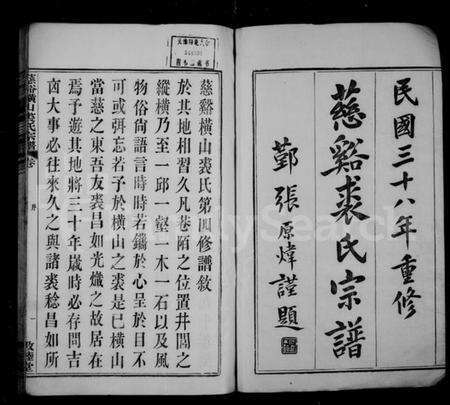 民國三十八年重修
慈谿裘氏宗譜
鄞張原煒謹題
慈谿橫山裘氏第四修譜敘
於其地相習久凡巷陌之位置井閭之
縱橫乃至一邱一壑一木一石以及風
物俗尚語言時時若鑴於心呈於目不
可或弭忘若予於橫山之裘是已橫山
當慈之東吾友裘昌如光熾之故居在
焉予遊其地將三十年歲時必存問吉
凶大事必往來久之與諸裘稔昌如所
慈谿橫山裘氏宗譜
序
一
敦睦堂